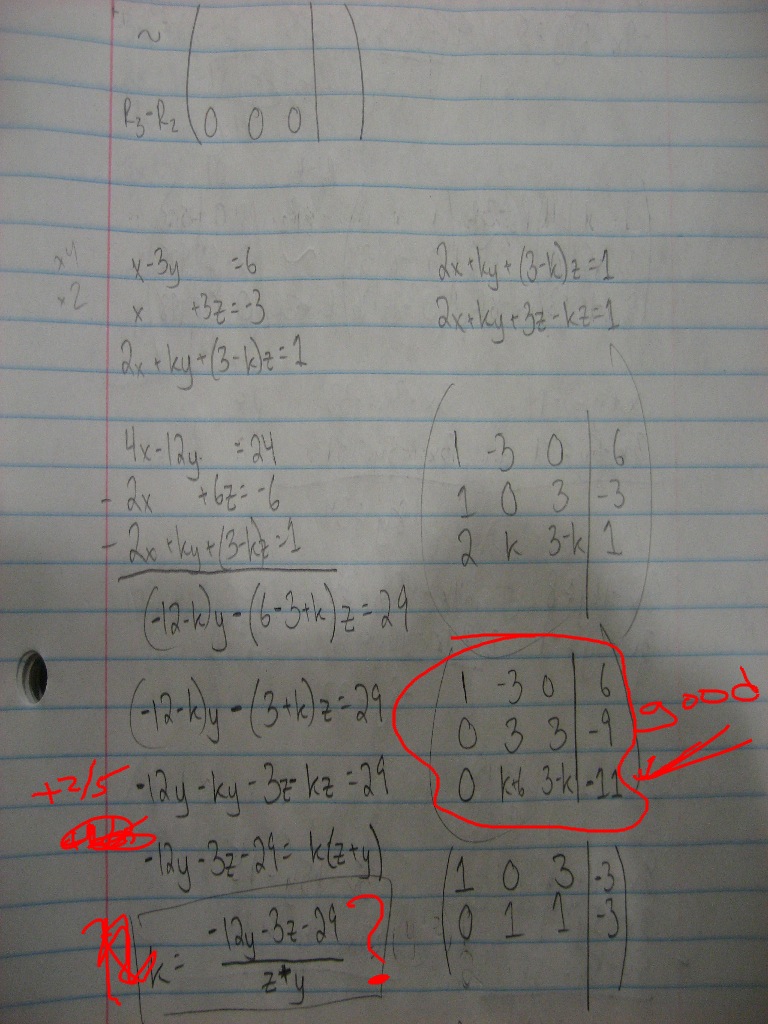 ~
R3-R2 0 0 0
x4 x-3y =6
x2 x +3z=-3
2x+ky+(3-k)z=1
2x+ky+(3-k)z=1
2x+ky+3z-kz=1
4x-12y =24
- 2x +6z=-6
- 2x+ky+(3-k)z=1
(-12-k)y-(6-3+k)z=29
(-12-k)y-(3+k)z=29
+2/5 -12y-ky-3z-kz=29
-12y-3z-29=k(z+y)
k= -12y-3z-29 ?
z*y
1 -3 0 6
1 0 3 -3
2 k 3-k 1
1 -3 0 6
0 3 3 -9
0 k+6 3-k -11
good
1 0 3 -3
0 1 1 -3